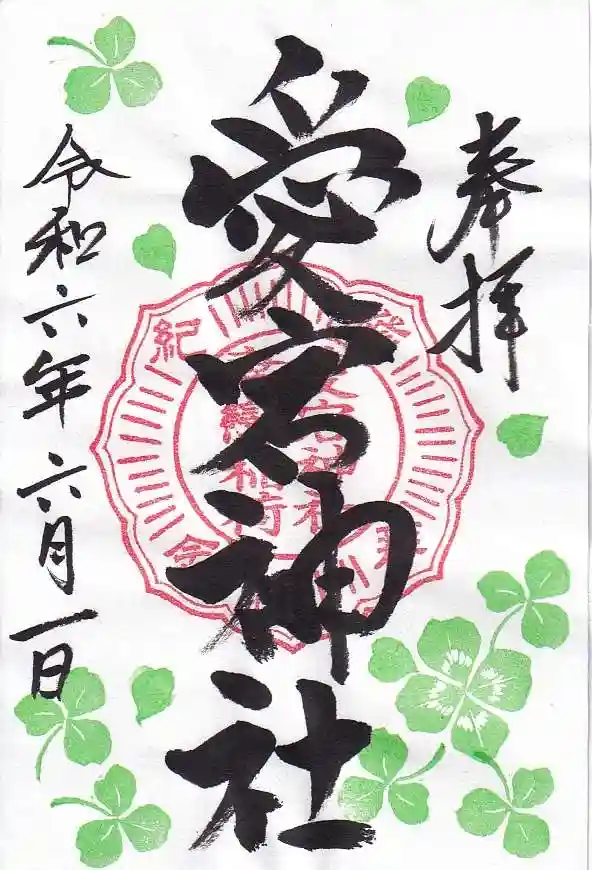 奉拝
愛宮神社
令和六年六月一日